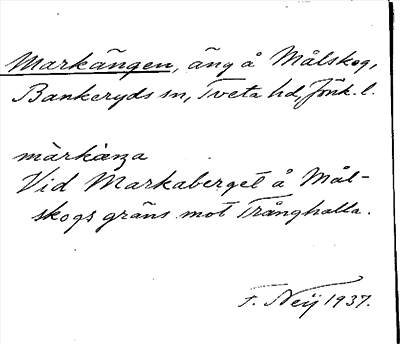 Markängen, äng å Målskog,
Bankeryds sn, Tveta hd, Jönk. l.
màrkàŋa
Vid Markaberget å Mål-
skogs gräns mot Trånghalla.
F. Neij 1937.